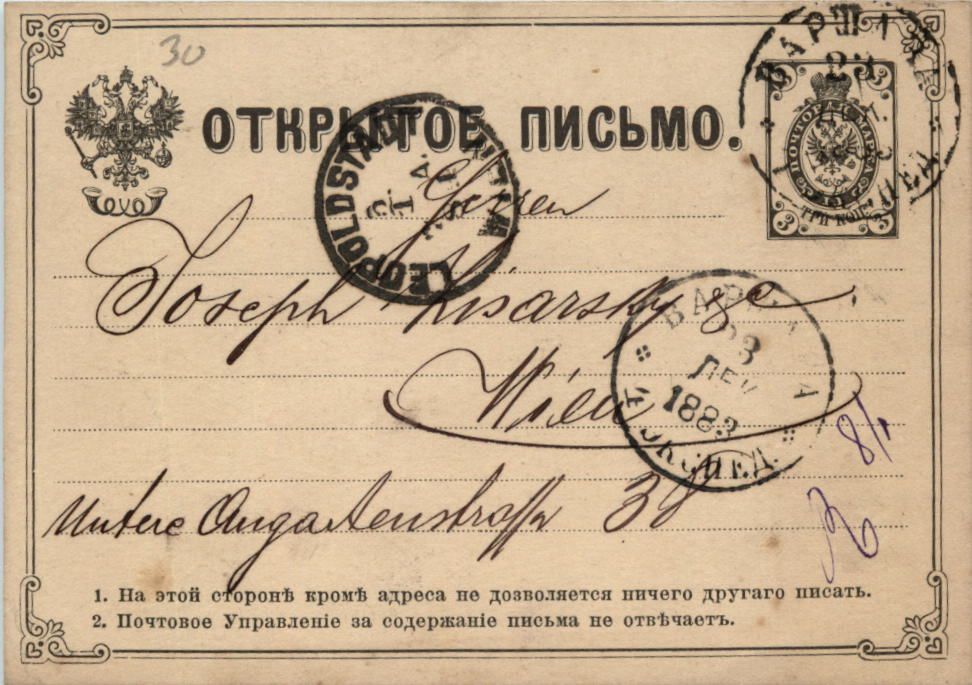 30
ОТКРЫТОЕ ПИСЬМО.
ВАРШАВА
23
ПОЧТОВАЯ МАРКА
3 ТРИ КОП. 3
LEOPOLDSTADT
Herren
Joseph Kisarsky & C
Wien
ВАРШАВА
23
ДЕК
1883
ЭКСПЕД.
Untere Augartenstrasse 38
1. На этой сторонѣ кромѣ адреса не дозволяется ничего другаго писать.
2. Почтовое Управленіе за содержаніе письма не отвѣчаетъ.